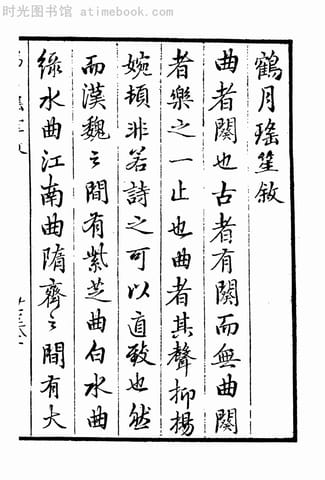 时光图书馆 atimebook.com
鶴月瑤笙敘
曲者闋也古者有闋而無曲闋
者樂之一止也曲者其聲抑揚
婉頓非若詩之可以直致也然
而漢魏之間有紫芝曲白水曲
綠水曲江南曲隋齊之間有大